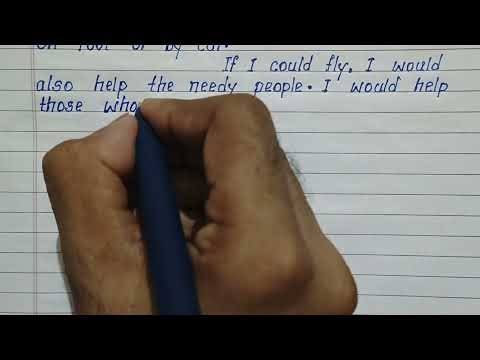 on foot or by car.
If I could fly, I would
also help the needy people. I would help
those who